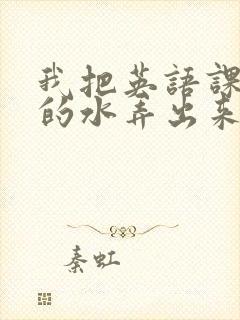 我把英語課
的水弄出来
秦虹